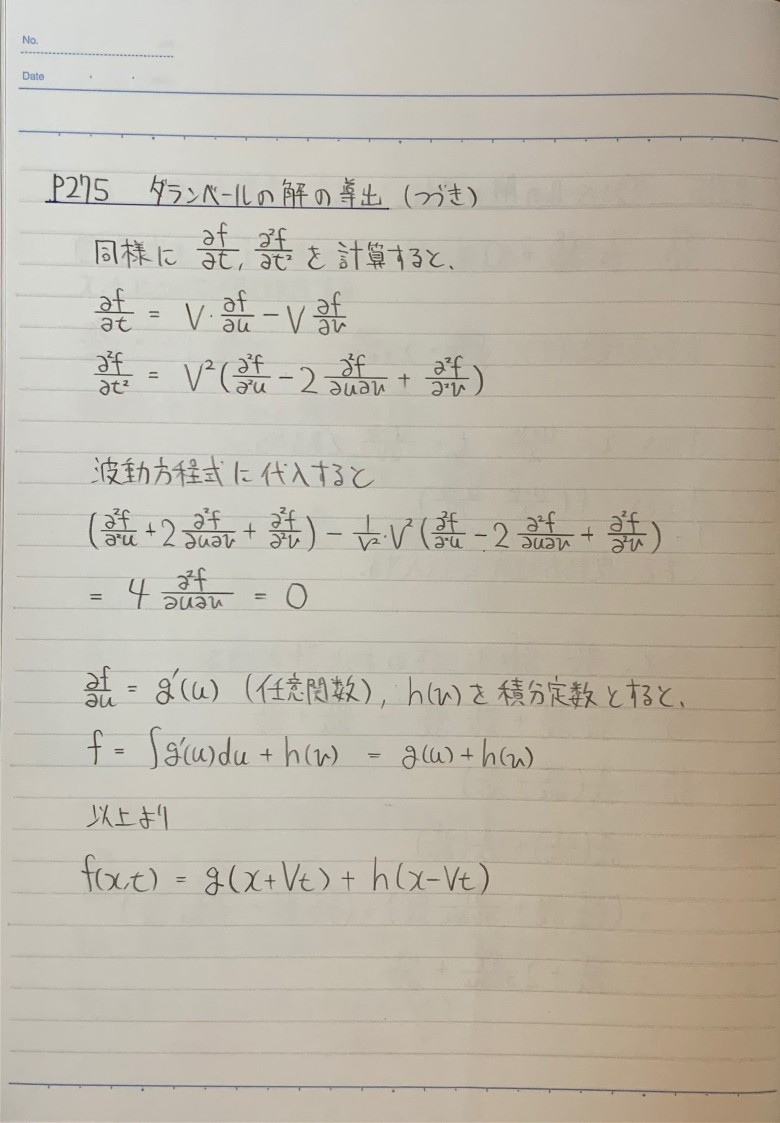 No.
Date
P275 ダランベールの解の導出 (つづき)
同様に ∂f/∂t, ∂²f/∂t² を計算すると、
∂f/∂t = V・∂f/∂u − V ∂f/∂v
∂²f/∂t² = V²(∂²f/∂²u − 2 ∂²f/∂u∂v + ∂²f/∂²v)
波動方程式に代入すると
(∂²f/∂²u + 2 ∂²f/∂u∂v + ∂²f/∂²v) − 1/V²・V²(∂²f/∂²u − 2 ∂²f/∂u∂v + ∂²f/∂²v)
= 4 ∂²f/∂u∂v = 0
∂f/∂u = g′(u) (任意関数), h(v)を積分定数とすると、
f = ∫g′(u)du + h(v) = g(u) + h(v)
以上より
f(x,t) = g(x+Vt) + h(x−Vt)